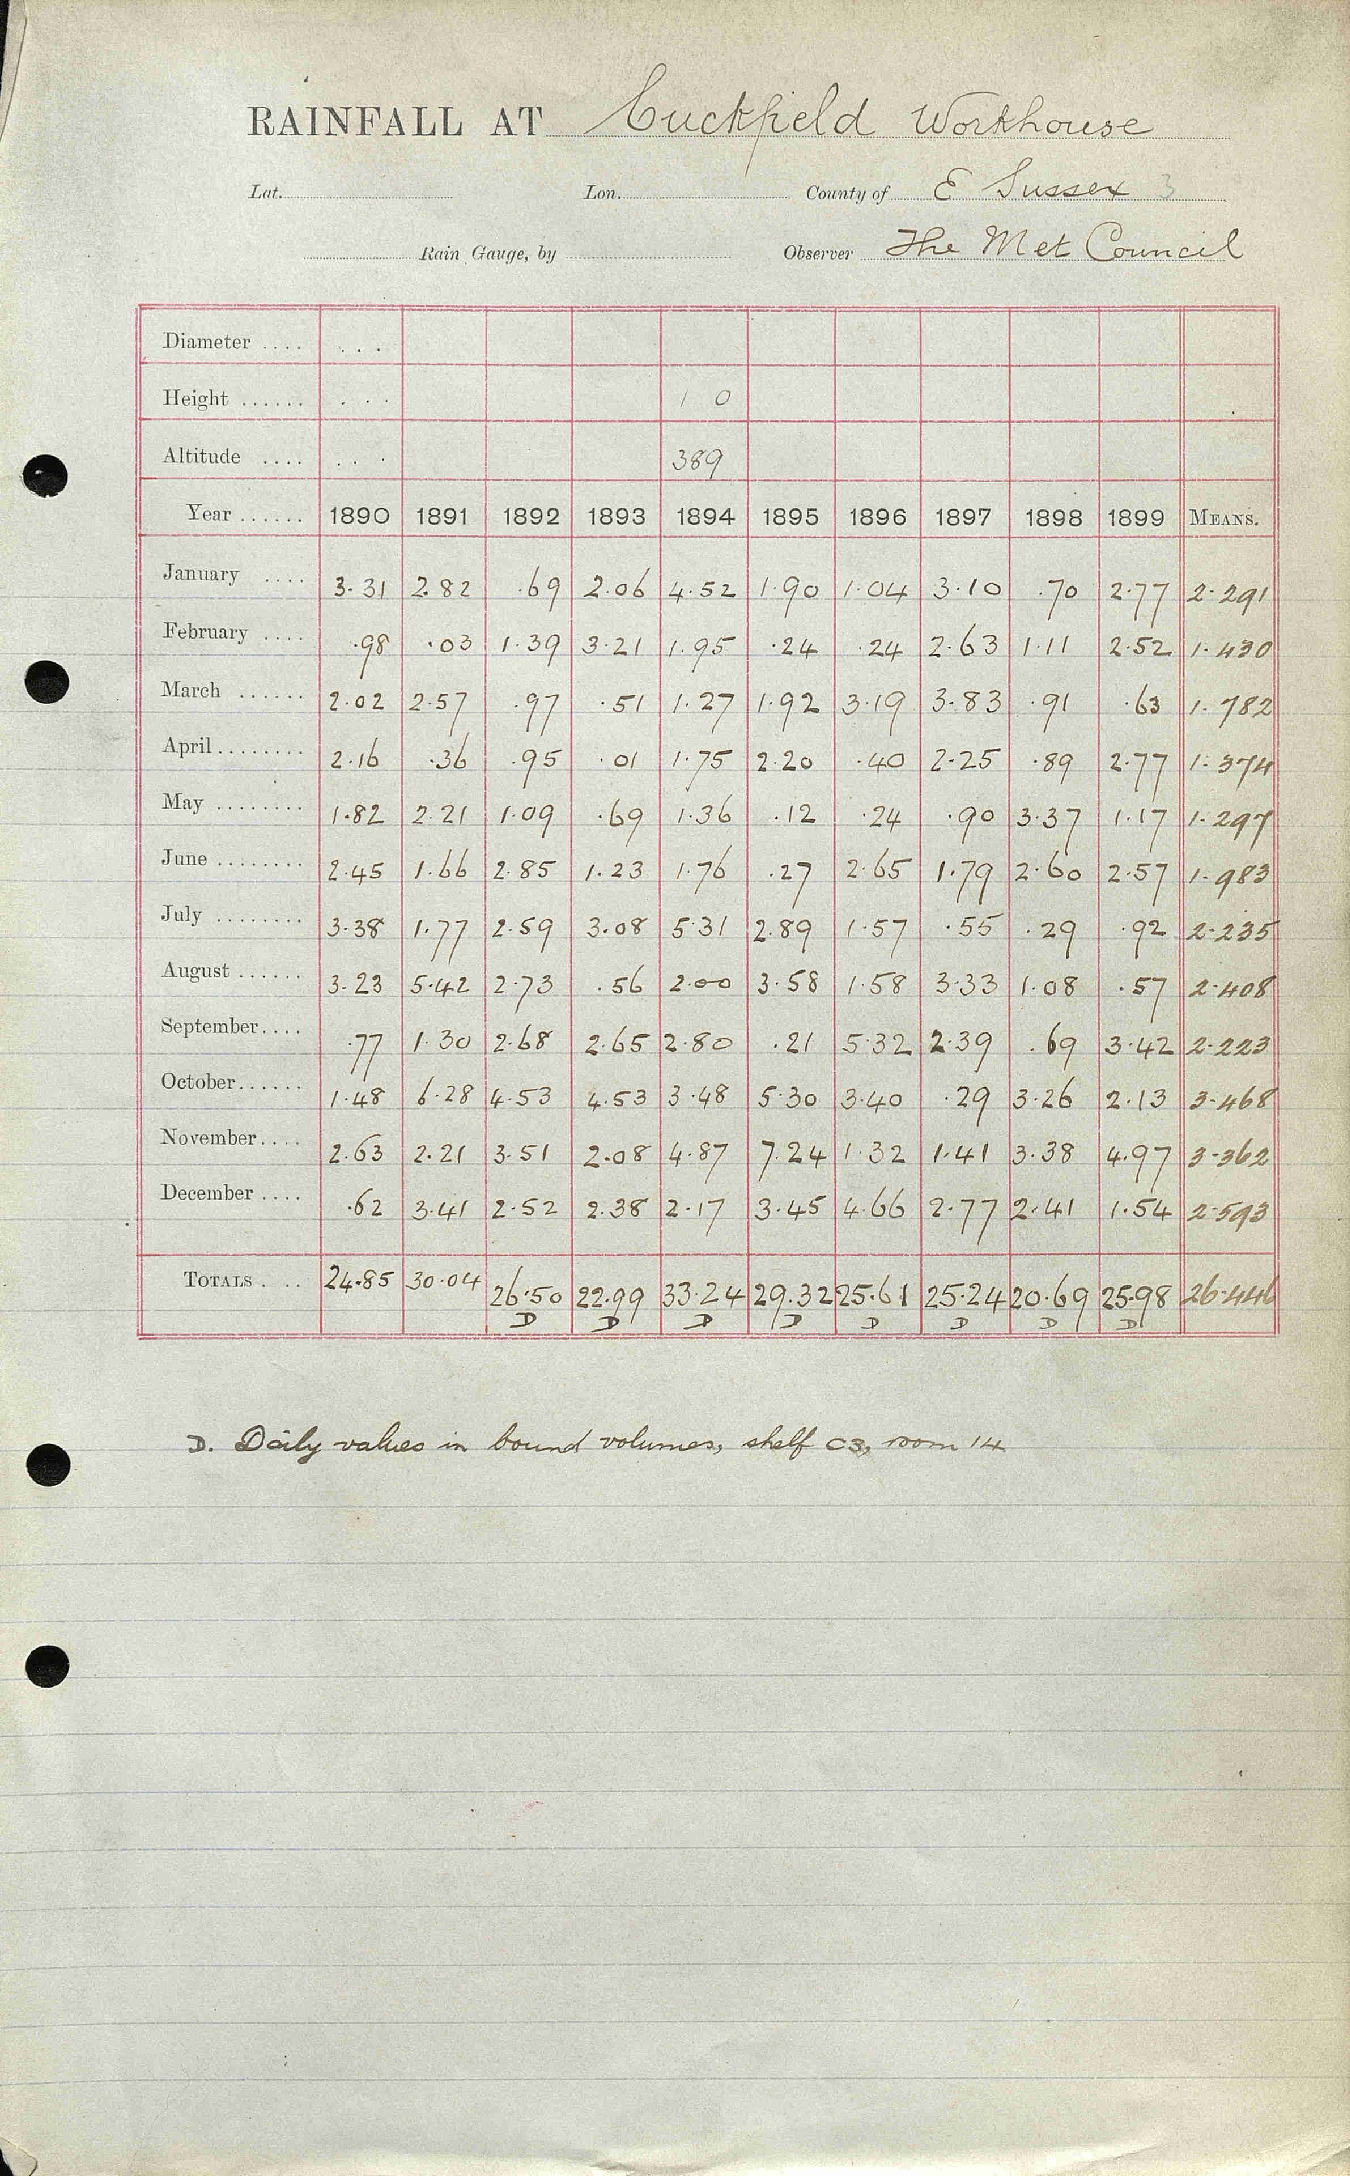 RAINFALL AT Cuckfield Workhouse
Lat. Lon. County of E Sussex 3
Rain Gauge, by Observer The Met Council
Diameter .... . . .
Height ...... . . . 1 0
Altitude .... . . . 389
Year ...... 1890 1891 1892 1893 1894 1895 1896 1897 1898 1899 MEANS.
January .... 3.31 2.82 .69 2.06 4.52 1.90 1.04 3.10 .70 2.77 2.291
February .... .98 .03 1.39 3.21 1.95 .24 .24 2.63 1.11 2.52 1.430
March ...... 2.02 2.57 .97 .51 1.27 1.92 3.19 3.83 .91 .63 1.782
April ........ 2.16 .36 .95 .01 1.75 2.20 .40 2.25 .89 2.77 1.374
May ........ 1.82 2.21 1.09 .69 1.36 .12 .24 .90 3.37 1.17 1.297
June ........ 2.45 1.66 2.85 1.23 1.76 .27 2.65 1.79 2.60 2.57 1.983
July ........ 3.38 1.77 2.59 3.08 5.31 2.89 1.57 .55 .29 .92 2.235
August ...... 3.23 5.42 2.73 .56 2.00 3.58 1.58 3.33 1.08 .57 2.408
September .... .77 1.30 2.68 2.65 2.80 .21 5.32 2.39 .69 3.42 2.223
October ...... 1.48 6.28 4.53 4.53 3.48 5.30 3.40 .29 3.26 2.13 3.468
November .... 2.63 2.21 3.51 2.08 4.87 7.24 1.32 1.41 3.38 4.97 3.362
December .... .62 3.41 2.52 2.38 2.17 3.45 4.66 2.77 2.41 1.54 2.593
TOTALS .... 24.85 30.04 26.50 22.99 33.24 29.32 25.61 25.24 20.69 25.98 26.446
D D D D D D D D
D. Daily values in bound volumes, shelf C3, room 14